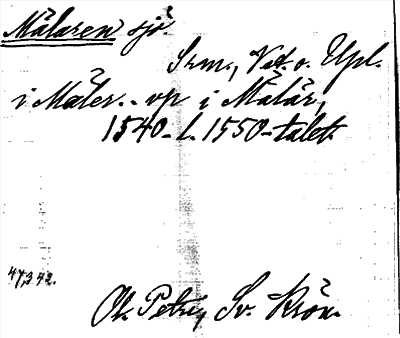 Mälaren sjö.
Srm., Vstm. o. Upl.
i Mäler. - vp i Mälär,
1540- l. 1550-talet.
47,342.
Ol. Petri, Sv. Krön.